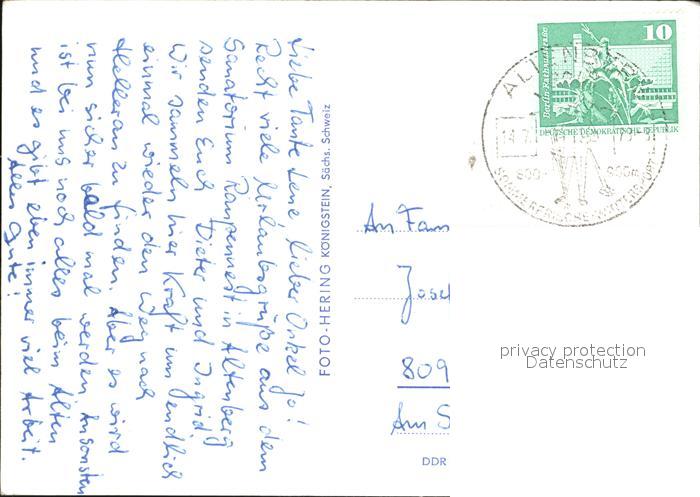 Liebe Tante Lene, lieber Onkel Jo!
Recht viele Urlaubsgrüße aus dem
Sanatorium Raupennest in Altenberg
senden Euch Dieter und Ingrid.
Wir sammeln hier Kraft um endlich
einmal wieder den Weg nach
Hellerau zu finden. Aber es wird
nun sicher bald mal werden. Ansonsten
ist bei uns noch alles beim Alten
und es gibt eben immer viel Arbeit.
Alles Gute!
FOTO-HERING KÖNIGSTEIN, Sächs. Schweiz
10
Berlin, Rathausstraße
DEUTSCHE DEMOKRATISCHE REPUBLIK
ALTENBERG
14.7.
800-
900m
SOMMERFRISCHE
An Fam
Josef
809
Am S
DDR
privacy protection
Datenschutz